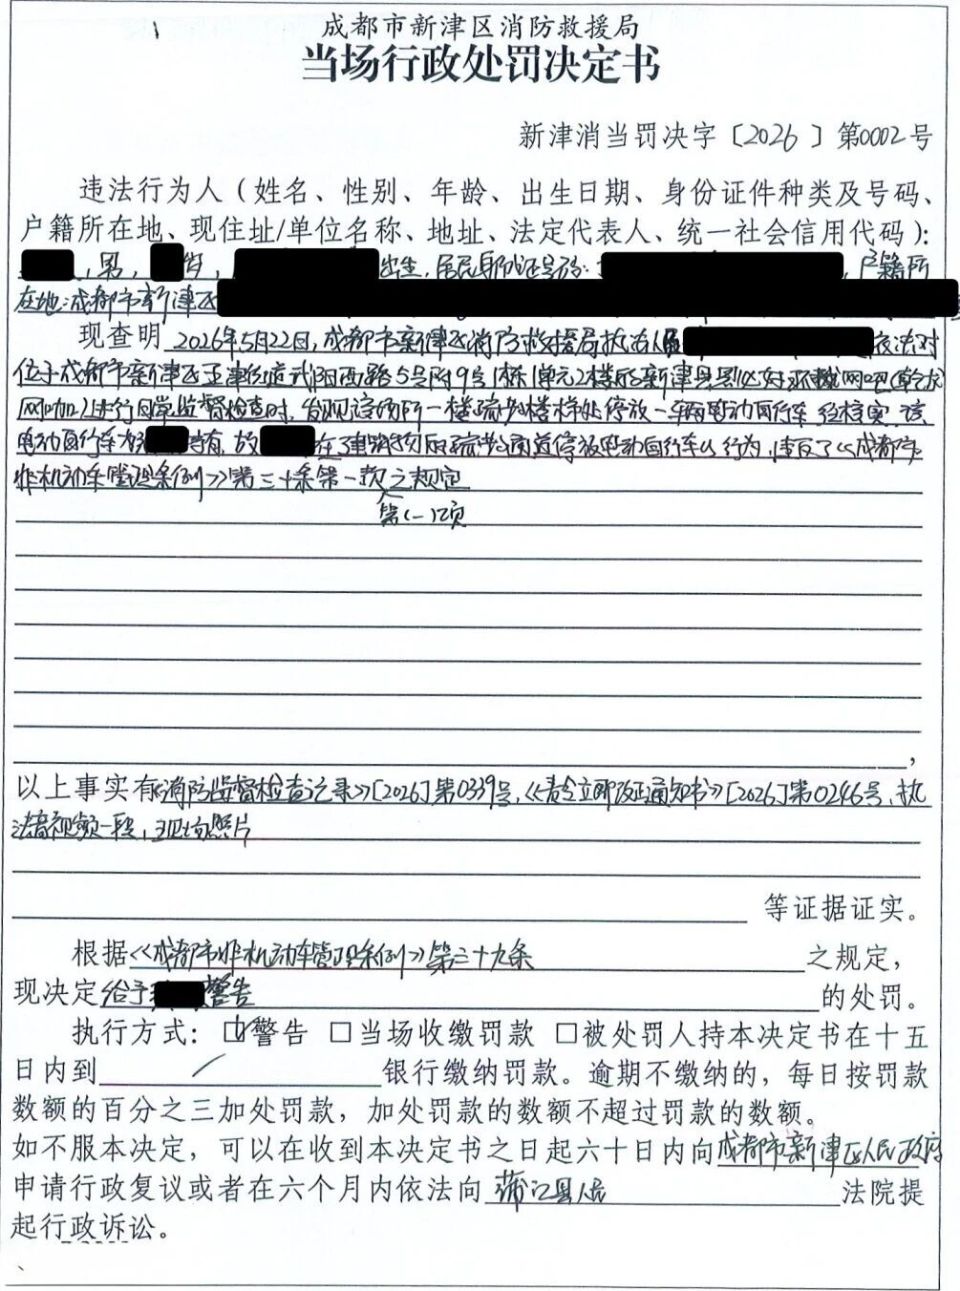 成都市新津区消防救援局
当场行政处罚决定书
新津消当罚决字〔2026〕第0002号
违法行为人（姓名、性别、年龄、出生日期、身份证件种类及号码、
户籍所在地、现住址/单位名称、地址、法定代表人、统一社会信用代码）：
，男，岁，出生，居民身份证号码：，户籍所
在地：成都市新津区
现查明 2026年5月22日，成都市新津区消防救援局执法人员依法对
位于成都市新津区五津街道武阳西路5号附9号1栋1单元2楼的新津县
网咖）进行日常监督检查时，发现该场所一楼疏散楼梯处停放一辆电动自行车，经核实，该
电动自行车为所有，故在建筑物疏散通道停放电动自行车的行为，违反了《成都市
非机动车管理条例》第三十条第一款之规定
第（一）项
，
以上事实有《消防监督检查记录》[2026]第0339号、《责令立即改正通知书》[2026]第0246号、执
法音视频一段，现场照片
等证据证实。
根据《成都市非机动车管理条例》第三十九条之规定，
现决定给予警告的处罚。
执行方式：☑警告 □当场收缴罚款 □被处罚人持本决定书在十五
日内到 / 银行缴纳罚款。逾期不缴纳的，每日按罚款
数额的百分之三加处罚款，加处罚款的数额不超过罚款的数额。
如不服本决定，可以在收到本决定书之日起六十日内向成都市新津区人民政府
申请行政复议或者在六个月内依法向蒲江县人民法院提
起行政诉讼。